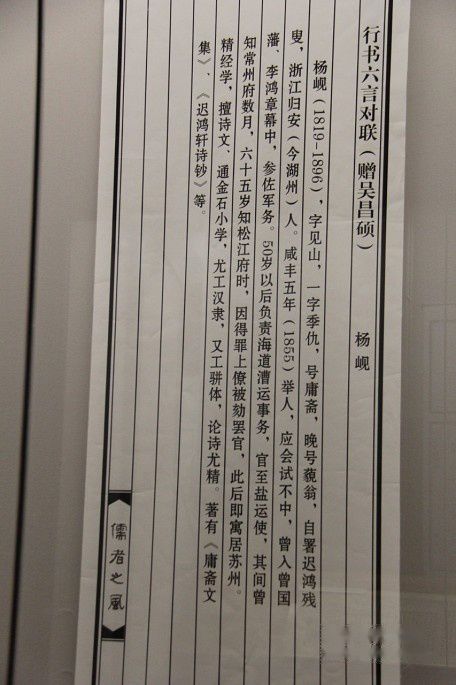 行书六言对联（赠吴昌硕）
杨岘
杨岘（1819-1896），字见山，一字季仇，号庸斋，晚号藐翁，自署迟鸿残
叟，浙江归安（今湖州）人。咸丰五年（1855）举人，应会试不中，曾入曾国
藩、李鸿章幕中，参佐军务。50岁以后负责海道漕运事务，官至盐运使，其间曾
知常州府数月，六十五岁知松江府时，因得罪上僚被劾罢官，此后即寓居苏州。
精经学，擅诗文、通金石小学，尤工汉隶，又工骈体，论诗尤精。著有《庸斋文
集》、《迟鸿轩诗钞》等。
儒者之风